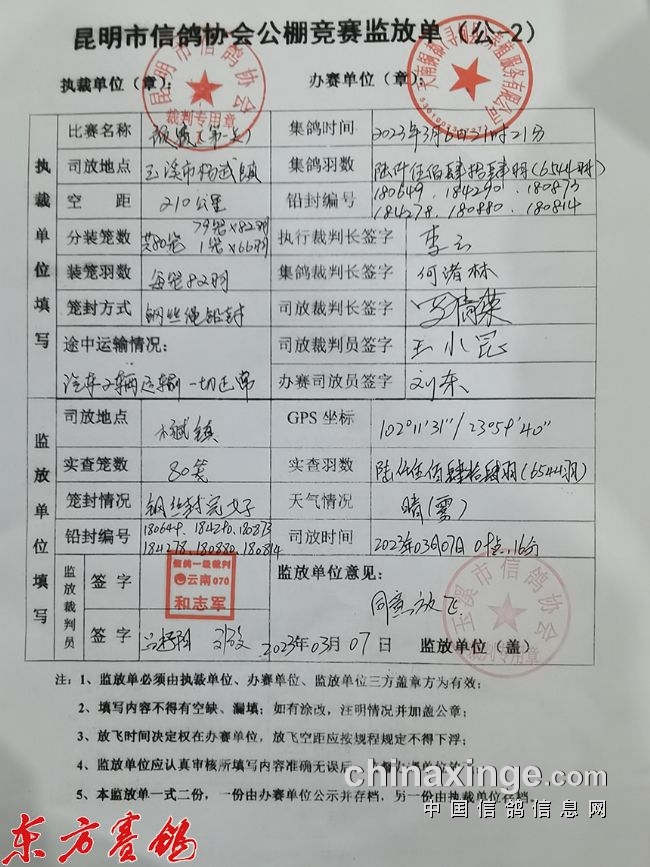 昆明市信鸽协会公棚竞赛监放单（公-2）
执裁单位（章）： 办赛单位（章）：
昆明市信鸽协会
裁判专用章
执裁单位填写
比赛名称 预赛(第一关) 集鸽时间 2023年3月6日21时21分
司放地点 玉溪市杨武镇 集鸽羽数 陆仟伍佰肆拾肆羽(6544羽)
空 距 210公里 铅封编号 180649、184290、180873
184278、180880、180814
分装笼数 共80笼 79笼×82羽
1笼×66羽
执行裁判长签字 李云
装笼羽数 每笼82羽 集鸽裁判长签字 何渚林
笼封方式 钢丝绳铅封 司放裁判长签字
途中运输情况： 司放裁判员签字 王小昆
汽车2辆运输一切正常 办赛司放员签字 刘东
监放单位填写
司放地点 杨武镇 GPS 坐标 102°11'31"/23°59'40"
实查笼数 80笼 实查羽数 陆仟伍佰肆拾肆羽(6544羽)
笼封情况 钢丝封完好 天气情况 晴(雾)
铅封编号 180649、184290、180873
184278、180880、180814
司放时间 2023年03月07日 16分
监放裁判员 签 字
信鸽一级裁判
云南070
和志军
监放单位意见：
同意放飞
签 字 2023年03月07日 监放单位（盖）
玉溪市信鸽协会
裁判专用章
注：1、监放单必须由执裁单位、办赛单位、监放单位三方盖章方为有效；
2、填写内容不得有空缺、漏填；如有涂改，注明情况并加盖公章；
3、放飞时间决定权在办赛单位，放飞空距应按规程规定不得下浮；
4、监放单位应认真审核所填写内容准确无误后
5、本监放单一式二份，一份由办赛单位公示并存档，另一份由执裁单位存档。
chinaxinge.com
中国信鸽信息网
东方赛鸽